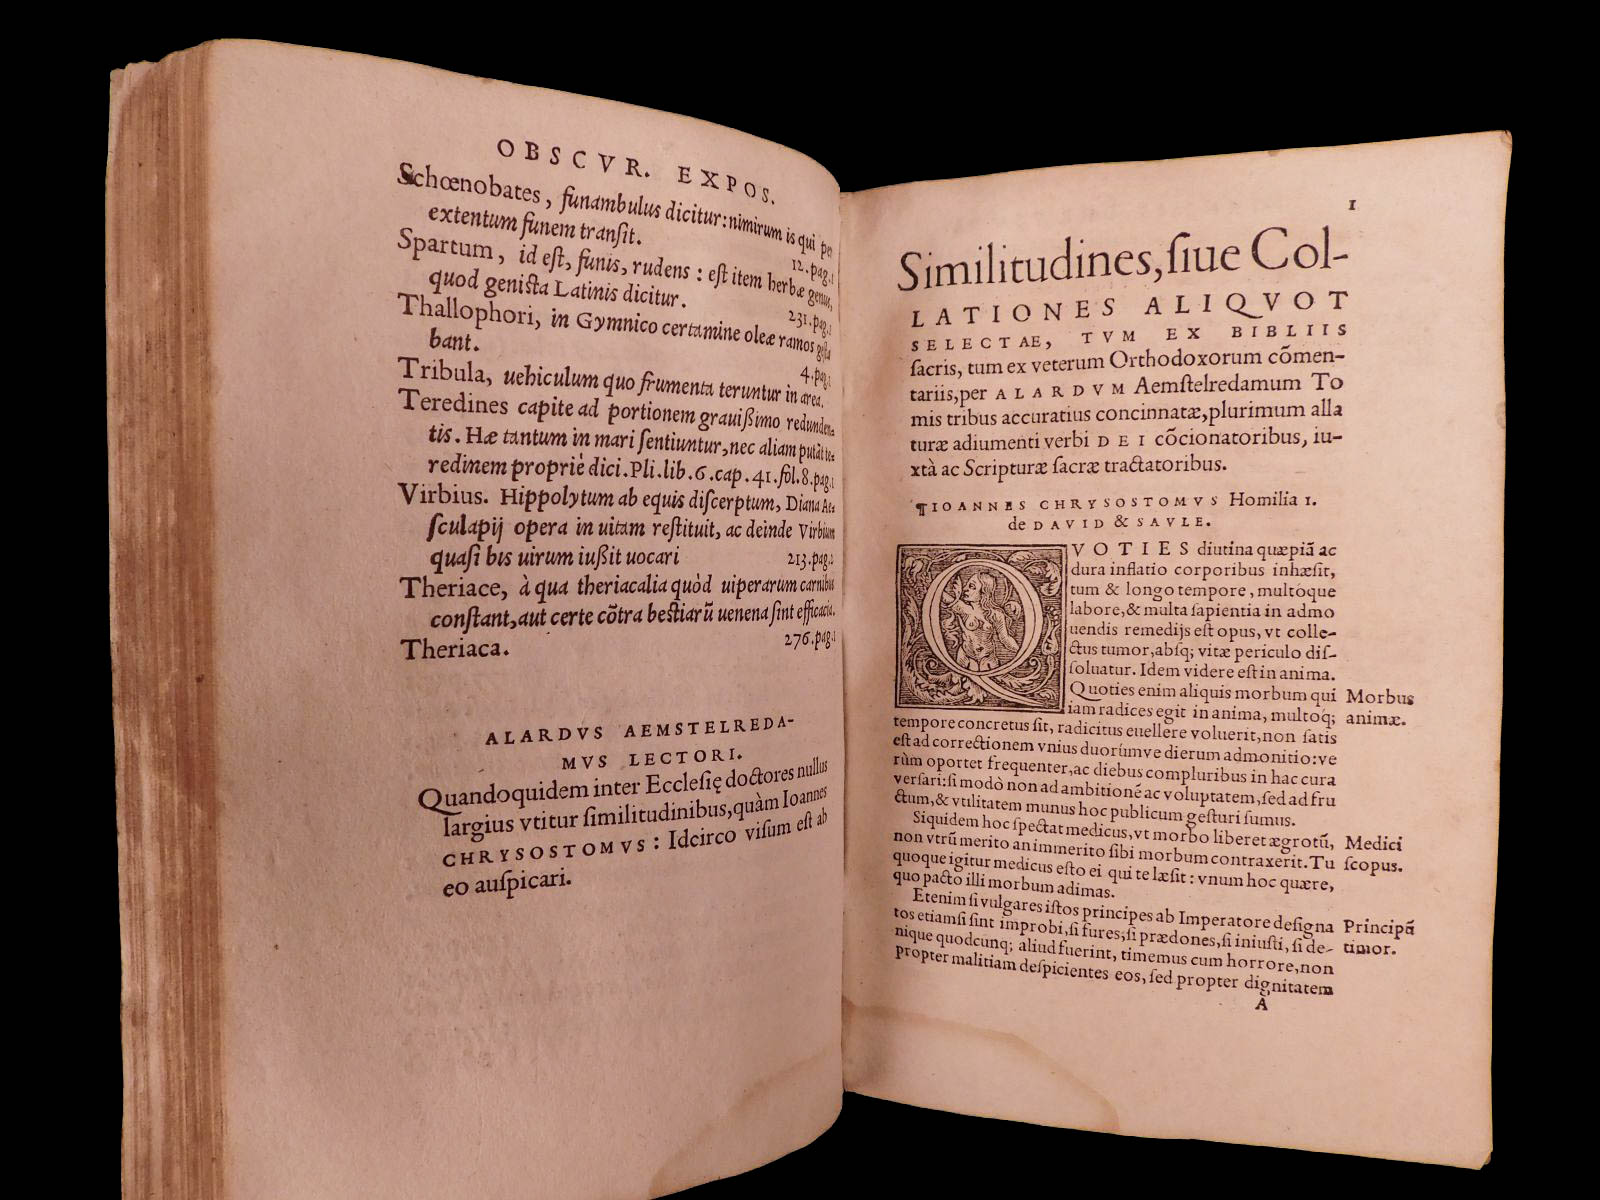 OBSCVR. EXPOS.
Schœnobates, funambulus dicitur: nimirum is qui per
extentum funem tranſit.
12.pag.1
Spartum, id eſt, funis, rudens: eſt item herbæ genus,
quod geniſta Latinis dicitur.
231.pag.2
Thallophori, in Gymnico certamine oleæ ramos geſta
bant.
4.pag.1
Tribula, uehiculum quo frumenta teruntur in area.
Teredines capite ad portionem grauißimo redunden-
tis. Hæ tantum in mari ſentiuntur, nec aliam putāt te-
redinem propriè dici. Pli. lib. 6. cap. 41. fol. 8. pag.1
Virbius. Hippolytum ab equis diſcerptum, Diana Aе-
ſculapij opera in uitam reſtituit, ac deinde Virbium
quaſi bis uirum iußit uocari 213.pag.2
Theriace, à qua theriacalia quòd uiperarum carnibus
conſtant, aut certe cōtra beſtiarū uenena ſint efficacia.
Theriaca. 276.pag.1
ALARDVS AEMSTELREDA-
MVS LECTORI.
Quandoquidem inter Eccleſię doctores nullus
largius vtitur ſimilitudinibus, quàm Ioannes
CHRYSOSTOMVS: Idcirco viſum eſt ab
eo auſpicari.
1
Similitudines, ſiue Col-
LATIONES ALIQVOT
SELECTAE, TVM EX BIBLIIS
ſacris, tum ex veterum Orthodoxorum cōmen-
tariis, per ALARDVM Aemſtelredamum To
mis tribus accuratius concinnatæ, plurimum alla
turæ adiumenti verbi DEI cōcionatoribus, iu-
xtà ac Scripturæ ſacræ tractatoribus.
¶IOANNES CHRYSOSTOMVS Homilia 1.
de DAVID & SAVLE.
QVOTIES diutina quæpiā ac
dura inflatio corporibus inhæſit,
tum & longo tempore, multóque
labore, & multa ſapientia in admo
uendis remedijs eſt opus, vt colle-
ctus tumor, abſq; vitæ periculo diſ-
ſoluatur. Idem videre eſt in anima.
Quoties enim aliquis morbum qui
iam radices egit in anima, multoq́;
tempore concretus ſit, radicitus euellere voluerit, non ſatis
eſt ad correctionem vnius duorúmve dierum admonitio: ve
rùm oportet frequenter, ac diebus compluribus in hac cura
verſari: ſi modò non ad ambitionē ac voluptatem, ſed ad fru
ctum, & vtilitatem munus hoc publicum geſturi ſumus.
Siquidem hoc ſpectat medicus, vt morbo liberet ægrotū,
non vtrū merito an immerito ſibi morbum contraxerit. Tu
quoque igitur medicus eſto ei qui te læſit: vnum hoc quære,
quo pacto illi morbum adimas.
Etenim ſi vulgares iſtos principes ab Imperatore deſigna
tos etiamſi ſint improbi, ſi fures, ſi prædones, ſi iniuſti, ſi de-
nique quodcunq; aliud fuerint, timemus cum horrore, non
propter malitiam deſpicientes eos, ſed propter dignitatem
A
Morbus
animæ.
Medici
ſcopus.
Principā
timor.